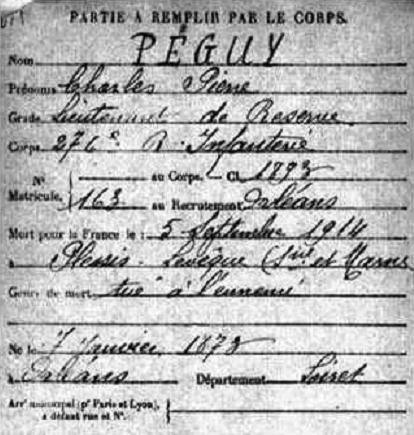 PARTIE À REMPLIR PAR LE CORPS.
Nom PÉGUY
Prénoms Charles Pierre
Grade Lieutenant de Réserve
Corps 276e R. Infanterie
N° Matricule. au Corps. — Cl. 1893
163 au Recrutement Orléans
Mort pour la France le : 5 Septembre 1914
à Plessis-Levêque (Sne et Marne
Genre de mort tué à l'ennemi
Né le 7 Janvier 1873
à Orléans Département Loiret
Arrt municipal (pr Paris et Lyon),
à défaut rue et N°.